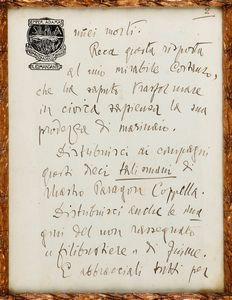 miei morti.
Reca questa risposta
al mio mirabile Costanzo,
che ha saputo trasformare
in civica sapienza la sua
prodezza di marinaio.
Distribuisci ai compagni
questi dieci talismani di
Mastro Paragon Coppella.
Distribuisci anche le
gini del non rassegnato
"filibustiere" di
E abbracciali tutti per